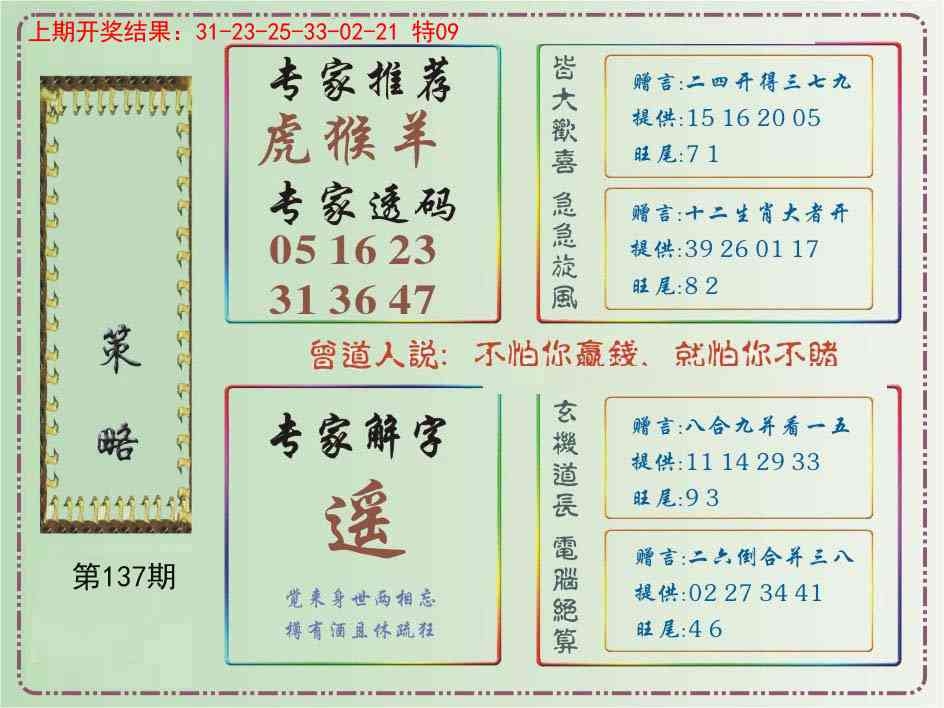 上期开奖结果：31-23-25-33-02-21 特09
策略
第137期
专家推荐
虎猴羊
专家透码
05 16 23
31 36 47
皆大歡喜
赠言:二四开得三七九
提供:15 16 20 05
旺尾:7 1
急急旋風
赠言:十二生肖大者开
提供:39 26 01 17
旺尾:8 2
曾道人説: 不怕你贏錢、就怕你不賭
专家解字
遥
觉来身世两相忘
樽有酒且休疏狂
玄機道長
赠言:八合九并看一五
提供:11 14 29 33
旺尾:9 3
電腦絕算
赠言:二六倒合并三八
提供:02 27 34 41
旺尾:4 6